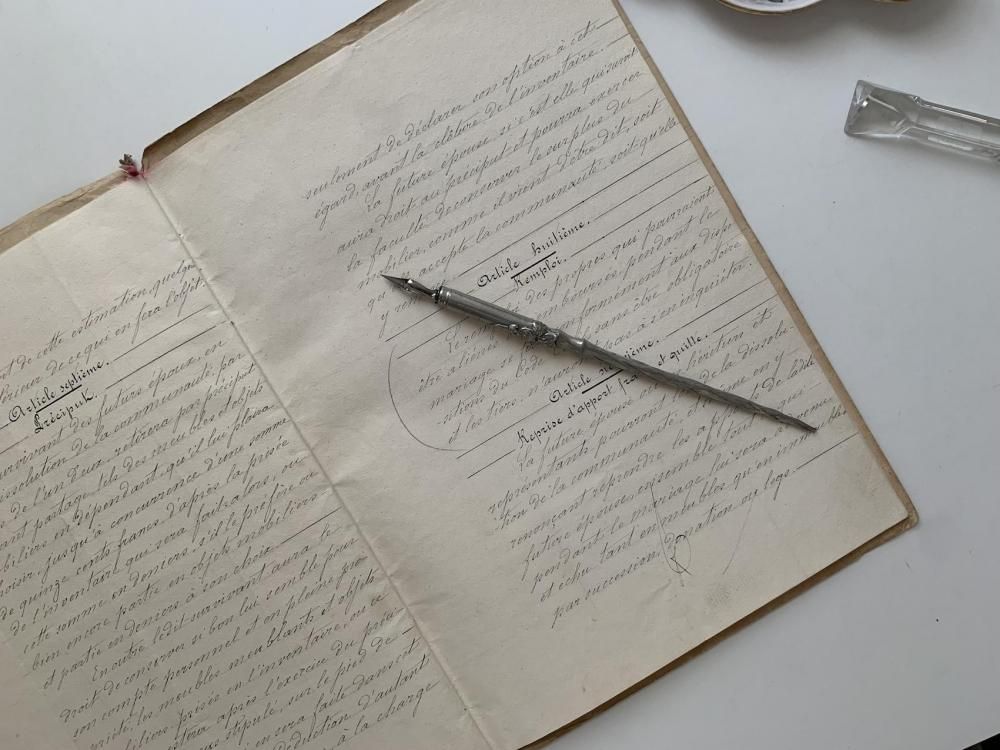 de cette estimation quelque
de ce qui en fera l'objet.
Article septième.
Préciput.
survivant des futurs époux, en
dissolution de la communauté par
de l'un d'eux, retirera par préciput
avant partage, tels des meubles et objets
mobiliers en dépendant, qu'il lui plaira
choisir, jusqu'à concurrence d'une somme
de quinze cents francs, d'après la prisée
de l'inventaire qui sera fait alors, ou
cette somme en deniers, s'il le préfère ou
bien encore partie en objets mobiliers
et partie en deniers à son choix
En outre ledit survivant aura le
droit de conserver si bon lui semble pour
son compte personnel et en pleine pro
priété, les meubles meublants et objets
mobiliers, prisés en l'inventaire, que ce
après l'exercice du préci
stipulé, sur le pied de
en sera faite dans cet
déduction d'autant
à la charge
seulement de déclarer son option à cet
égard, avant la clôture de l'inventaire.
La future épouse, si c'est elle qui survit
aura droit au préciput et pourra exercer
la faculté de conserver le surplus du
mobilier, comme il vient d'être dit, soit
accepte la communauté, soit qu'elle
y
Article huitième.
Remploi.
des propres qui pourraient
être aliénés remboursés pendant le
mariage se conformément aux dispo
sitions du Code sans être obligatoire
et les tiers n'auront pas à s'en inquiéter.
Article
Reprise d'apport et quitte.
La future épouse héritiers et
représentants pourront, de la dissolu-
tion de la communauté, et en y
renonçant reprendre les apports de ladite
future épouse, ensemble tout ce qui
pendant le mariage lui sera advenu
et échu tant en meubles qu'en immeubles
par succession, donation ou legs